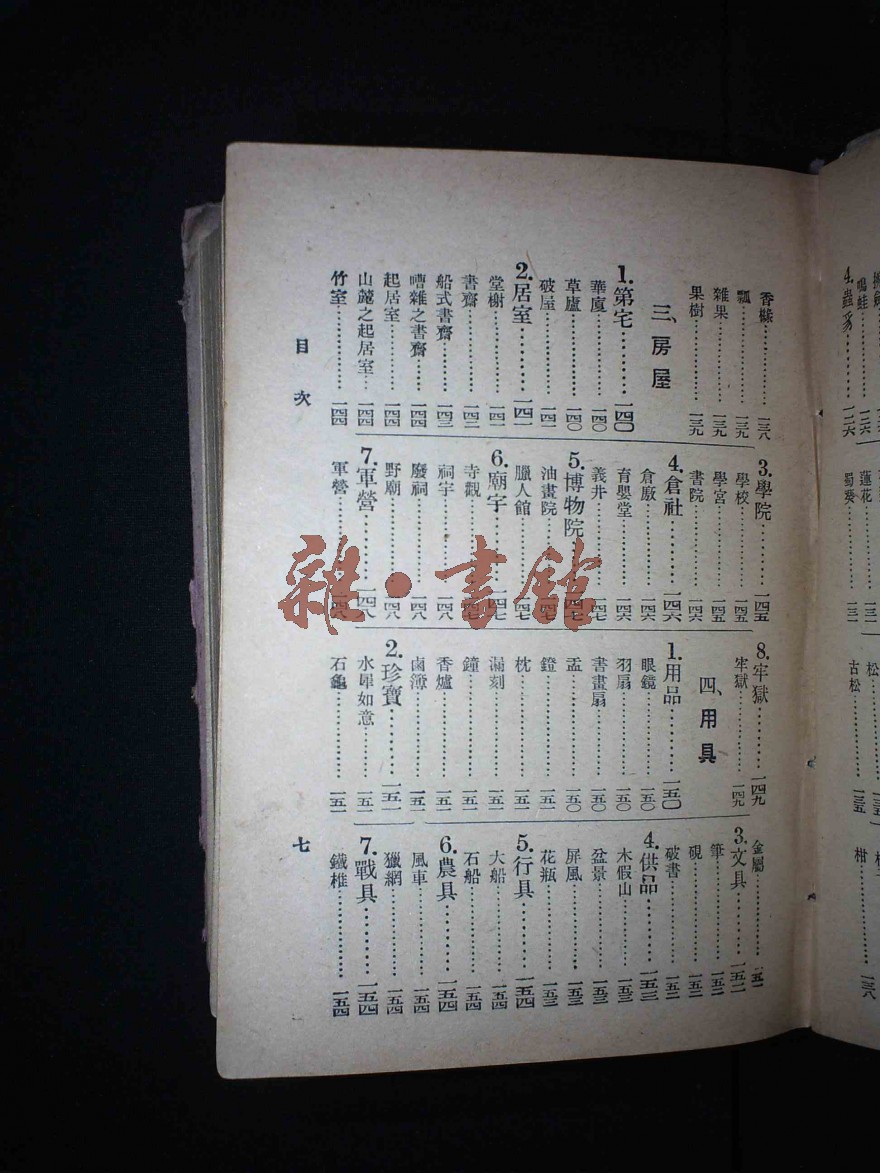 香櫞⋯⋯一三八
瓢⋯⋯一三九
雜果⋯⋯一三九
果樹⋯⋯一三九
三、房屋
1.第宅⋯⋯一四〇
華廈⋯⋯一四〇
草廬⋯⋯一四〇
破屋⋯⋯一四一
2.居室⋯⋯一四一
堂榭⋯⋯一四一
書齋⋯⋯一四二
船式書齋⋯⋯一四三
嘈雜之書齋⋯⋯一四四
起居室⋯⋯一四四
山麓之起居室⋯⋯一四四
竹室⋯⋯一四四
3.學院⋯⋯一四五
學校⋯⋯一四五
學宮⋯⋯一四五
書院⋯⋯一四六
4.倉社⋯⋯一四六
倉廒⋯⋯一四六
育嬰堂⋯⋯一四六
義井⋯⋯一四七
5.博物院⋯⋯一四七
油畫院⋯⋯一四七
臘人館⋯⋯一四七
6.廟宇⋯⋯一四七
寺觀⋯⋯一四七
祠宇⋯⋯一四八
廢祠⋯⋯一四八
野廟⋯⋯一四八
7.軍營⋯⋯一四八
軍營⋯⋯一四八
8.牢獄⋯⋯一四九
牢獄⋯⋯一四九
四、用具
1.用品⋯⋯一五〇
眼鏡⋯⋯一五〇
羽扇⋯⋯一五〇
書畫扇⋯⋯一五〇
盂⋯⋯一五〇
鐙⋯⋯一五一
枕⋯⋯一五一
漏刻⋯⋯一五一
鐘⋯⋯一五一
香爐⋯⋯一五一
鹵簿⋯⋯一五一
2.珍寶⋯⋯一五一
水犀如意⋯⋯一五一
石龜⋯⋯一五一
金屬⋯⋯一五二
3.文具⋯⋯一五二
筆⋯⋯一五二
硯⋯⋯一五二
破書⋯⋯一五二
4.供品⋯⋯一五三
木假山⋯⋯一五三
盆景⋯⋯一五三
屏風⋯⋯一五三
花瓶⋯⋯一五三
5.行具⋯⋯一五四
大船⋯⋯一五四
石船⋯⋯一五四
6.農具⋯⋯一五四
風車⋯⋯一五四
獵網⋯⋯一五四
7.戰具⋯⋯一五四
鐵椎⋯⋯一五四
目次
七
雜·書館
鳴蛙⋯⋯一二六
4.蟲豸⋯⋯一二六
蓮花⋯⋯一三一
蜀葵⋯⋯一三一
松⋯⋯一三五
古松⋯⋯一三五
柑⋯⋯一三八